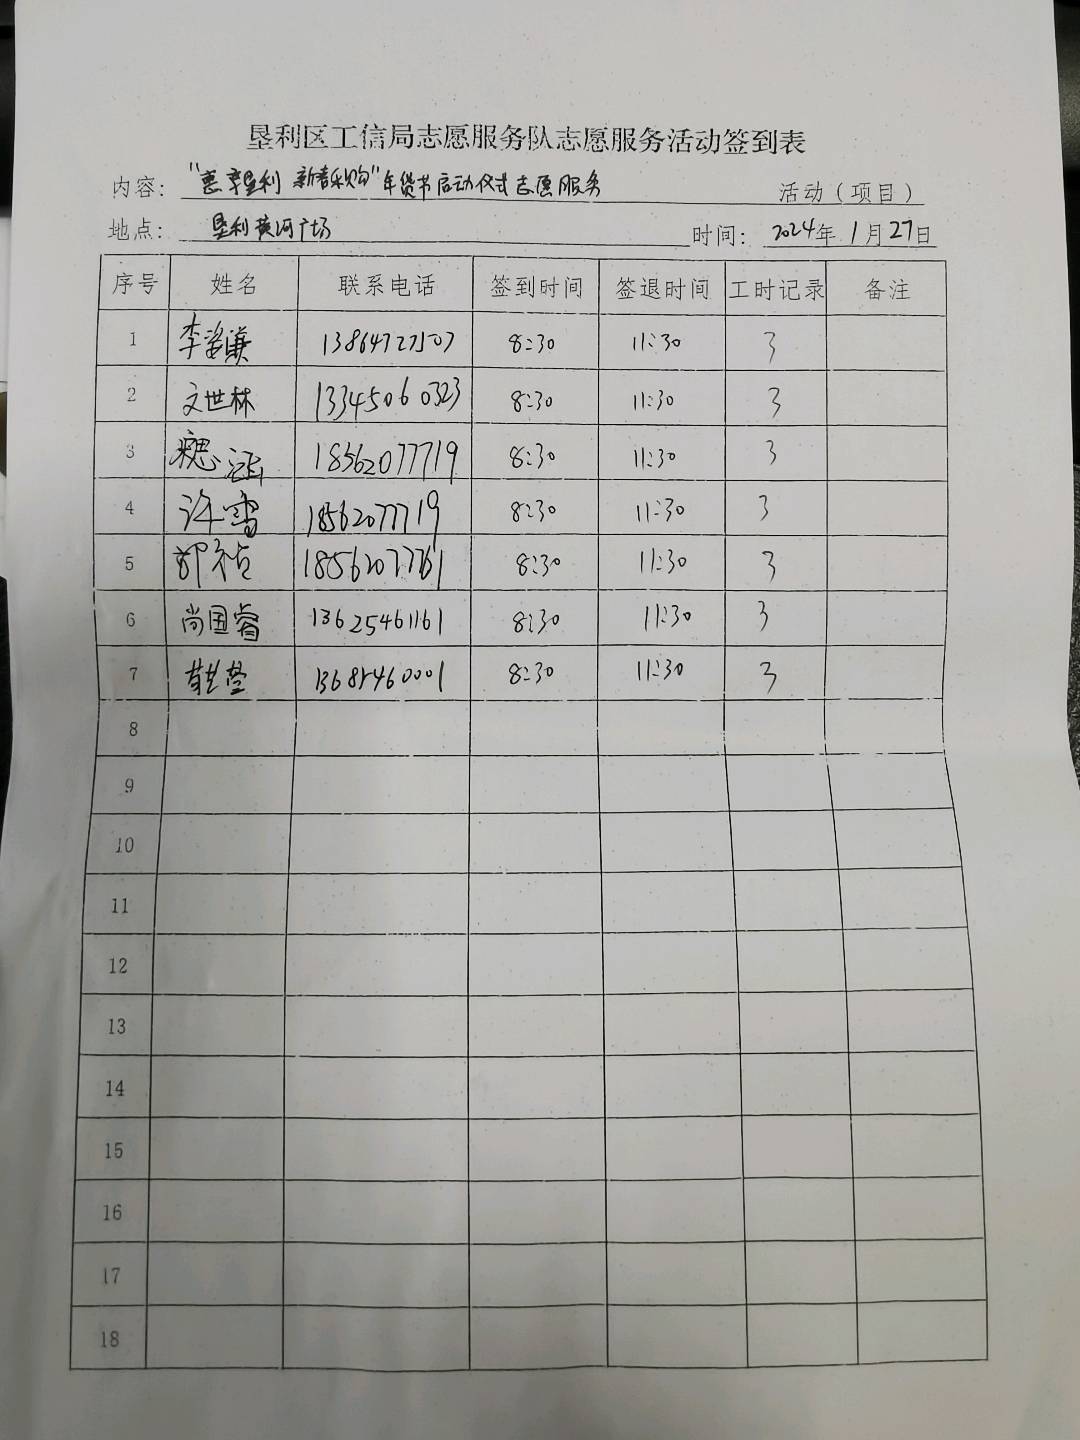 垦利区工信局志愿服务队志愿服务活动签到表
内容：“惠享垦利 新春采购”年货节启动仪式志愿服务 活动（项目）
地点：垦利黄河广场 时间：2024年1月27日
序号 姓名 联系电话 签到时间 签退时间 工时记录 备注
1 李 13864727507 8:30 11:30 3
2 文世林 13345060323 8:30 11:30 3
3 18562077719 8:30 11:30 3
4 许雪 18562077719 8:30 11:30 3
5 18562077761 8:30 11:30 3
6 尚国睿 13625461161 8:30 11:30 3
7 13685460001 8:30 11:30 3
8
9
10
11
12
13
14
15
16
17
18